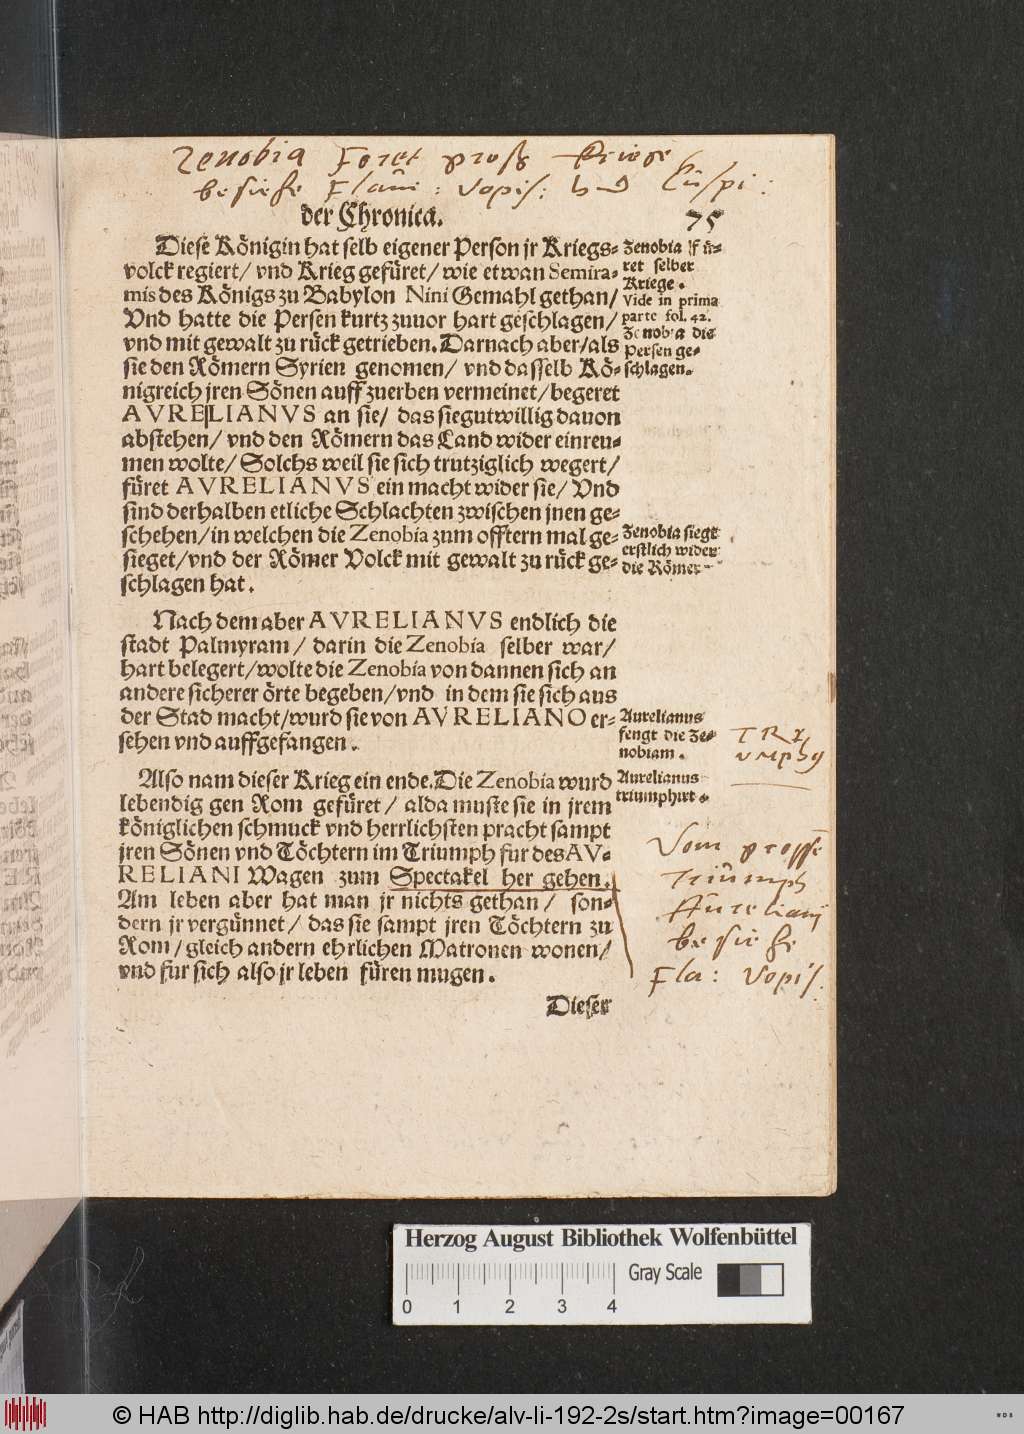 Zenobia Foret groß Kriege
besiehe Flaui: Vopis: vnd Cuspi:
der Chronica. 75
Diese Königin hat selb eigener Person jr Kriegs-
volck regiert/ vnd Krieg gefüret/ wie etwan Semira-
mis des Königs zu Babylon Nini Gemahl gethan/
Vnd hatte die Persen kurtz zuuor hart geschlagen/
vnd mit gewalt zu rück getrieben. Darnach aber/ als
sie den Römern Syrien genomen/ vnd dasselb Kö-
nigreich jren Sönen auff zuerben vermeinet/ begeret
AVRELIANVS an sie/ das sie gutwillig dauon
abstehen/ vnd den Römern das Land wider einreu-
men wolte/ Solchs weil sie sich trutziglich wegert/
füret AVRELIANVS ein macht wider sie/ Vnd
sind derhalben etliche Schlachten zwischen jnen ge-
schehen/ in welchen die Zenobia zum offtern mal ge-
sieget/ vnd der Römer Volck mit gewalt zu rück ge-
schlagen hat.
Zenobia fü-
ret selber
Kriege.
Vide in prima
parte fol. 42.
Zenobia die
Persen ge-
schlagen.
Zenobia siegt
erstlich wider
die Römer
Nach dem aber AVRELIANVS endlich die
stadt Palmyram/ darin die Zenobia selber war/
hart belegert/ wolte die Zenobia von dannen sich an
andere sicherer örte begeben/ vnd in dem sie sich aus
der Stad macht/ wurd sie von AVRELIANO er-
sehen vnd auffgefangen.
Aurelianus
fengt die Ze-
nobiam.
TRI
vmphg
Also nam dieser Krieg ein ende. Die Zenobia wurd
lebendig gen Rom gefüret/ alda muste sie in jrem
königlichen schmuck vnd herrlichsten pracht sampt
jren Sönen vnd Töchtern im Triumph fur des AV-
RELIANI Wagen zum Spectakel her gehen.
Am leben aber hat man jr nichts gethan/ son-
dern jr vergünnet/ das sie sampt jren Töchtern zu
Rom/ gleich andern ehrlichen Matronen wonen/
vnd fur sich also jr leben füren mugen.
Aurelianus
triumphirt.
Vom grosse
Triumph
Aureliani
besiehe
Fla: Vopis.
Dieser
Herzog August Bibliothek Wolfenbüttel
Gray Scale
0 1 2 3 4
© HAB http://diglib.hab.de/drucke/alv-li-192-2s/start.htm?image=00167